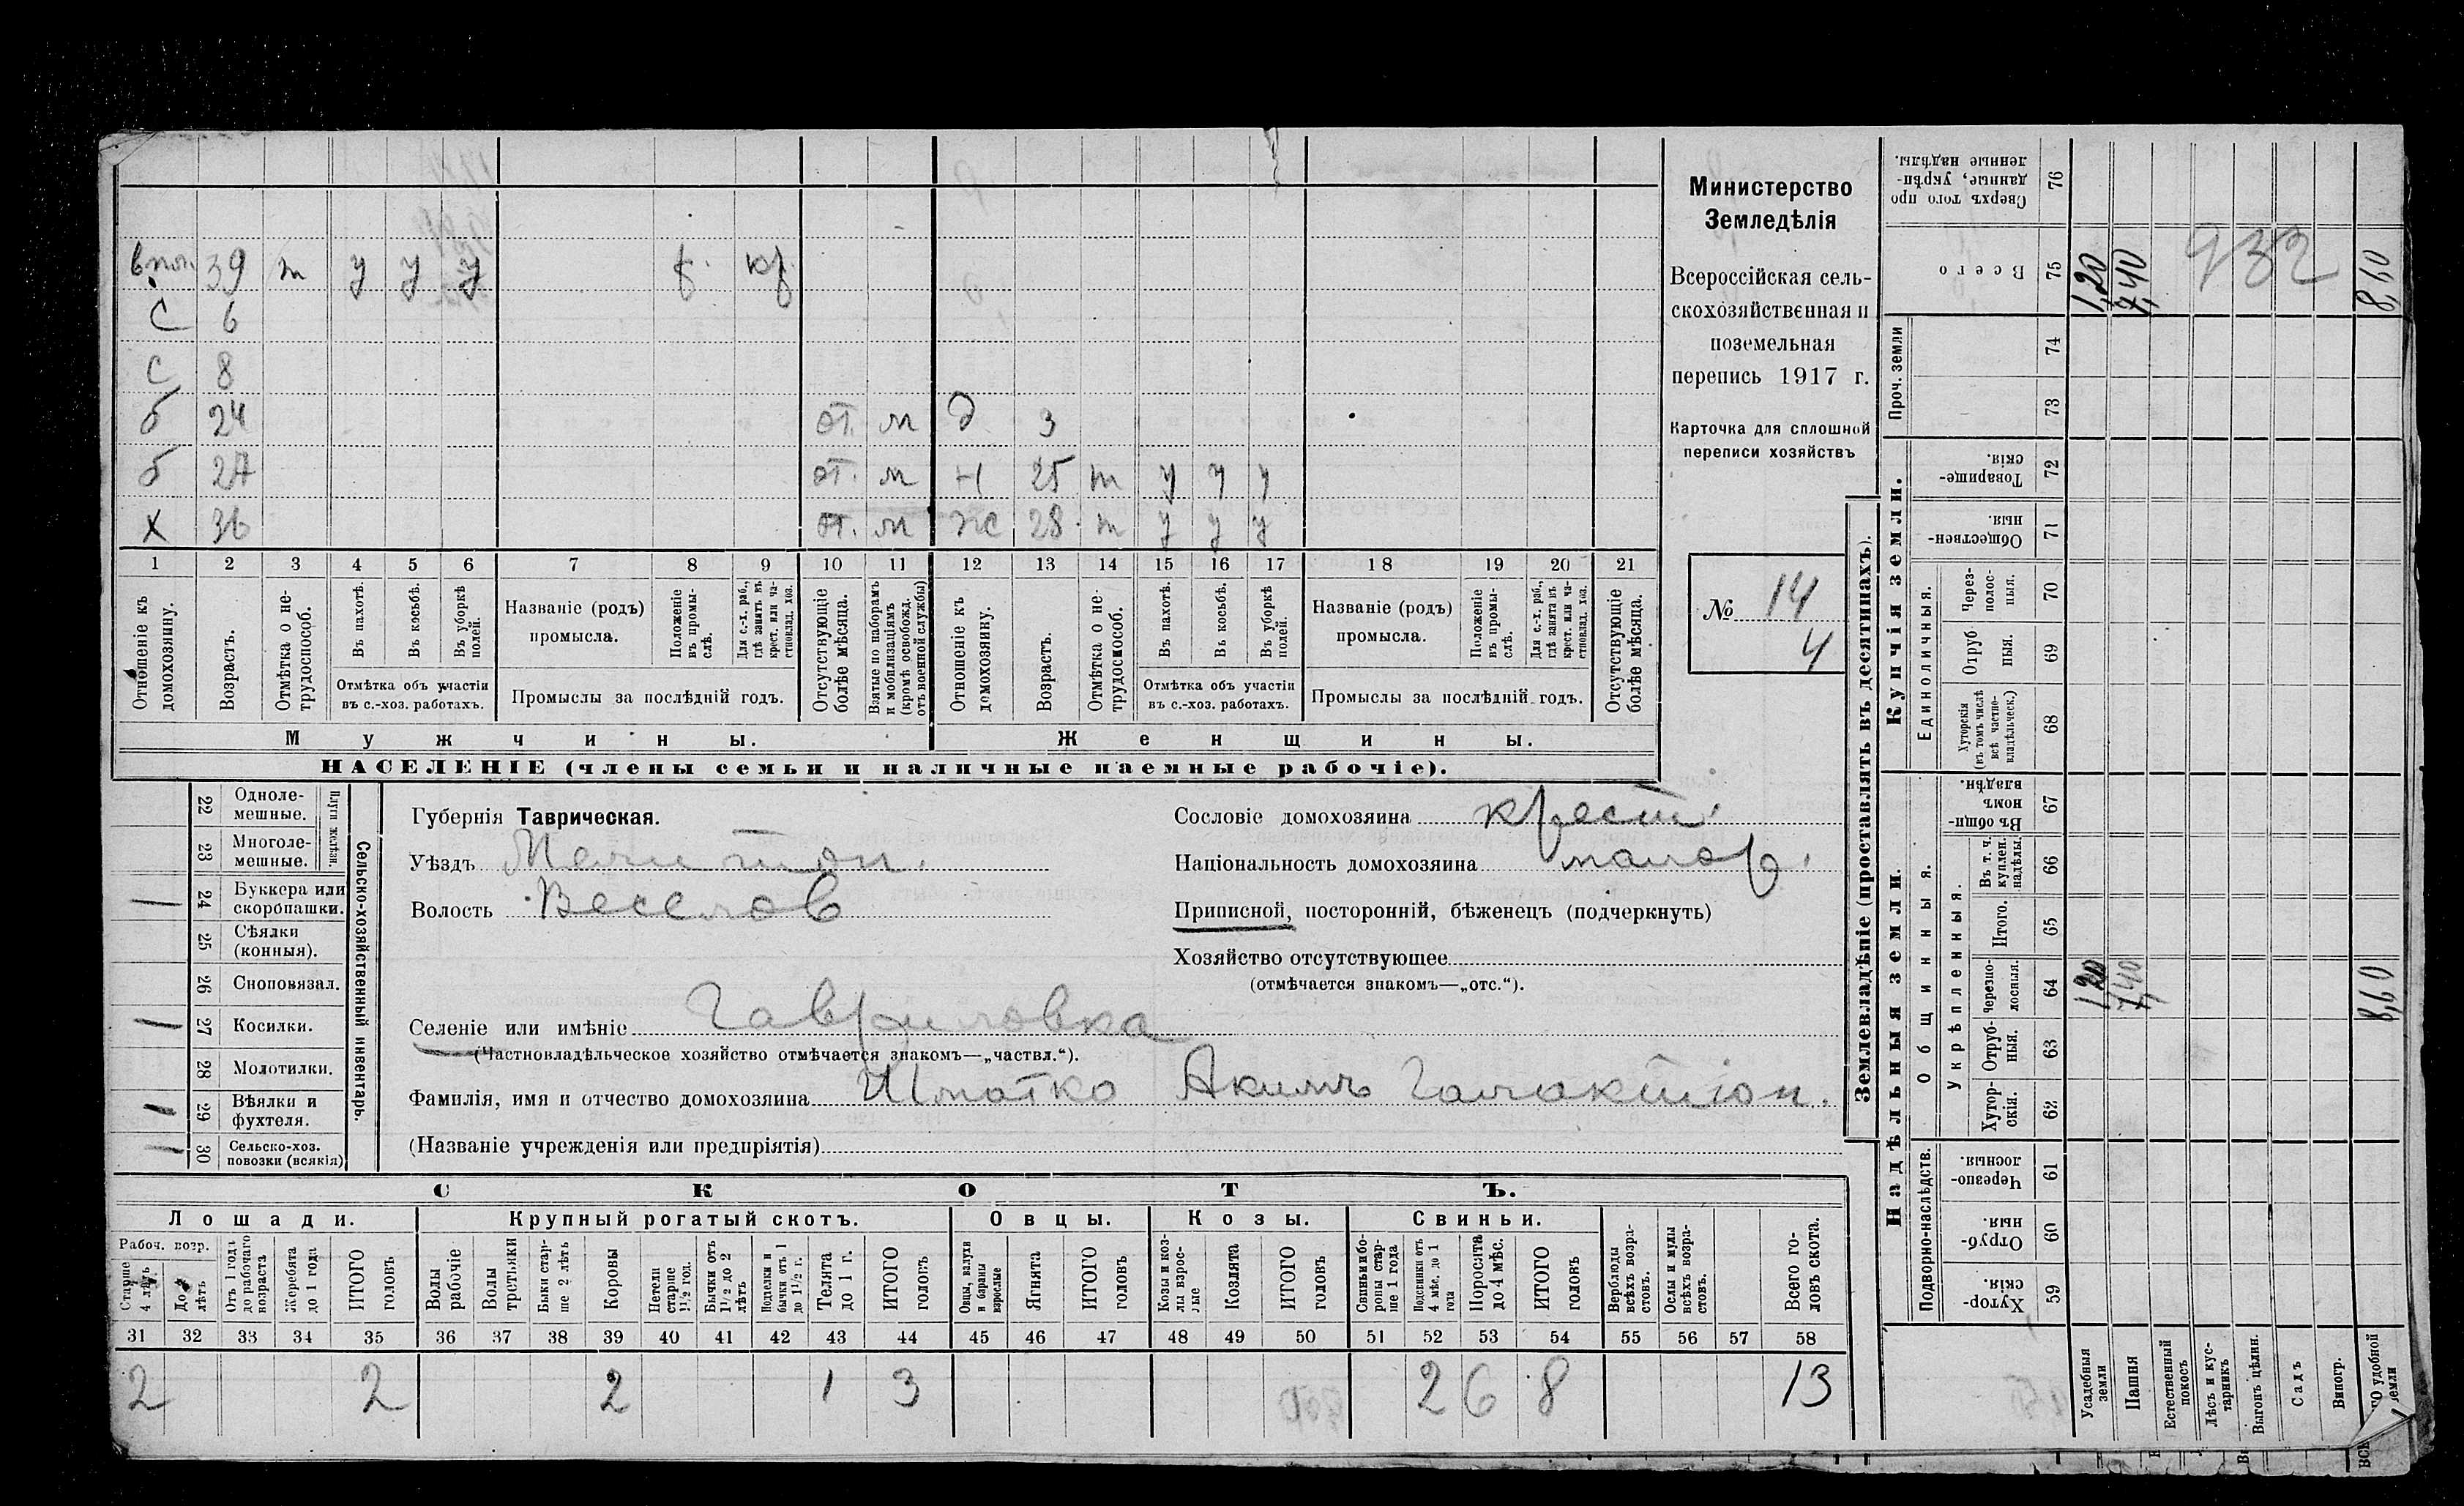 впл. 39 т у у у б. кр.
С 6
С 8
б 24 от. м д 3
б 27 от. м н 25 т у у у
Х 36 от. м ж 28 т у у у
1 2 3 4 5 6 7 8 9 10 11 12 13 14 15 16 17 18 19 20 21
Отношеніе къ домохозяину.
Возрастъ.
Отмѣтка о нетрудоспособ.
Въ пахотѣ.
Въ косьбѣ.
Въ уборкѣ полей.
Отмѣтка объ участіи
въ с.-хоз. работахъ.
Названіе (родъ)
промысла.
Положеніе въ промыслѣ.
Для с.-х. раб., гдѣ занятъ въ крест. или частновлад. хоз.
Промыслы за послѣдній годъ.
Отсутствующіе болѣе мѣсяца.
Взятые по наборамъ и мобилизаціямъ (кромѣ освобожд. отъ военной службы)
Отношеніе къ домохозяину.
Возрастъ.
Отмѣтка о нетрудоспособ.
Въ пахотѣ.
Въ косьбѣ.
Въ уборкѣ полей.
Отмѣтка объ участіи
въ с.-хоз. работахъ.
Названіе (родъ)
промысла.
Положеніе въ промыслѣ.
Для с.-х. раб., гдѣ занята въ крест. или частновлад. хоз.
Промыслы за послѣдній годъ.
Отсутствующіе болѣе мѣсяца.
Мужчины. Женщины.
НАСЕЛЕНІЕ (члены семьи и наличные наемные рабочіе).
Министерство
Земледѣлія
Всероссійская сель-
скохозяйственная и
поземельная
перепись 1917 г.
Карточка для сплошной
переписи хозяйствъ
№ 14
4
Сельско-хозяйственный инвентарь.
Плуги желѣзн.
22 Одноле-
мешные.
23 Многоле-
мешные.
24 Буккера или
скоропашки.
25 Сѣялки
(конныя).
26 Сноповязал.
27 Косилки.
28 Молотилки.
29 Вѣялки и
фухтеля.
30 Сельско-хоз.
повозки (всякія)
Губернія Таврическая.
Уѣздъ Мелитоп.
Волость Веселов
Сословіе домохозяина крест.
Національность домохозяина малор.
Приписной, посторонній, бѣженецъ (подчеркнуть)
Хозяйство отсутствующее
(отмѣчается знакомъ—„отс.“).
Селеніе или имѣніе Гавриловка
(Частновладѣльческое хозяйство отмѣчается знакомъ—„частвл.“).
Фамилія, имя и отчество домохозяина Шматко Акимъ Галактіон.
(Названіе учрежденія или предпріятія)
СКОТЪ.
Лошади. Крупный рогатый скотъ. Овцы. Козы. Свиньи.
Рабоч. возр.
Старше 4 лѣтъ
До 4 лѣтъ
Отъ 1 года до рабочаго возраста
Жеребята до 1 года
ИТОГО головъ
Волы рабочіе
Волы третьяки
Быки старше 2 лѣтъ
Коровы
Нетели старше 1½ год.
Бычки отъ 1½ до 2 лѣтъ
Подтелки и бычки отъ 1 до 1½ г.
Телята до 1 г.
ИТОГО головъ
Овцы, валухи и бараны взрослые
Ягнята
ИТОГО головъ
Козы и козлы взрослые
Козлята
ИТОГО головъ
Свиньи и боровы старше 1 года
Подсвинки отъ 4 мѣс. до 1 года
Поросята до 4 мѣс.
ИТОГО головъ
Верблюды всѣхъ возрастовъ.
Ослы и мулы всѣхъ возрастовъ.
Всего головъ скота.
31 32 33 34 35 36 37 38 39 40 41 42 43 44 45 46 47 48 49 50 51 52 53 54 55 56 57 58
2 2 2 1 3 2 6 8 13
Землевладѣніе (проставлять въ десятинахъ).
Надѣльныя земли. Купчія земли. Проч. земли
Подворно-наслѣдств.
Общинныя.
Укрѣпленныя.
Единоличныя.
Хутор-
скія. 59
Отруб-
ныя. 60
Черезпо-
лосныя. 61
Хутор-
скія. 62
Отруб-
ныя. 63
Черезпо-
лосныя. 64
Итого. 65
Въ т. ч. куплен. надѣлы. 66
Въ общи-
номъ
владѣн. 67
Хуторскія (въ томъ числѣ всѣ частновладѣльческ.) 68
Отруб
ныя. 69
Черезполосныя. 70
Обществен-
ныя. 71
Товарище-
скія. 72
73
74
Всего 75
Сверхъ того про
данные, укрѣп-
ленные надѣлы. 76
Усадебныя земли 1,20 1,20
Пашня 7,40 7,40
Естественный покосъ
Лѣсъ и кустарникъ
Выгонъ цѣлин.
Садъ
Виногр.
удобной земли 8,60 8,60
932